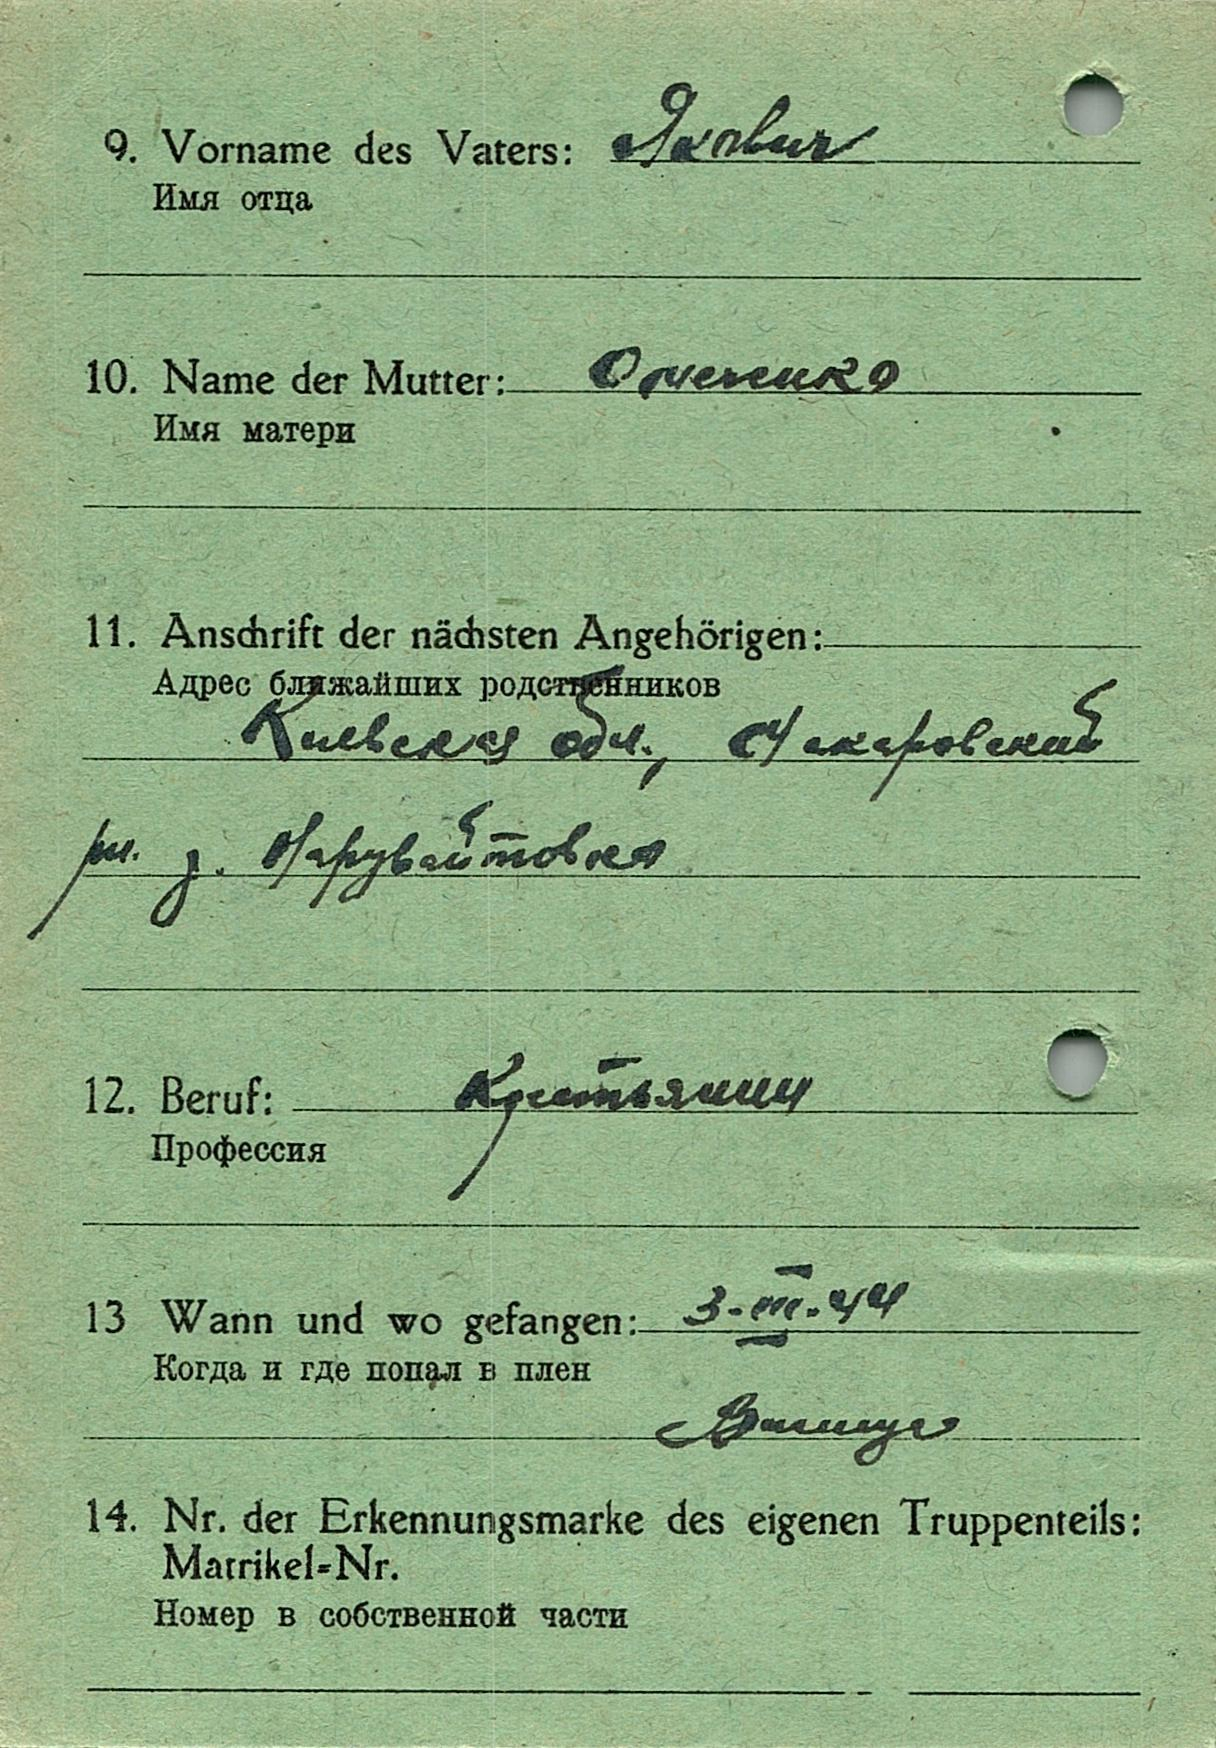 9. Vorname des Vaters: Якович
Имя отца
10. Name der Mutter: Омеченко
Имя матери
11. Anschrift der nächsten Angehörigen:
Адрес ближайших родственников
Киевская обл., Макаровский
рн. д.
12. Beruf: Крестьянин
Профессия
13 Wann und wo gefangen: 3-III-44
Когда и где попал в плен
14. Nr. der Erkennungsmarke des eigenen Truppenteils:
Matrikel-Nr.
Номер в собственной части